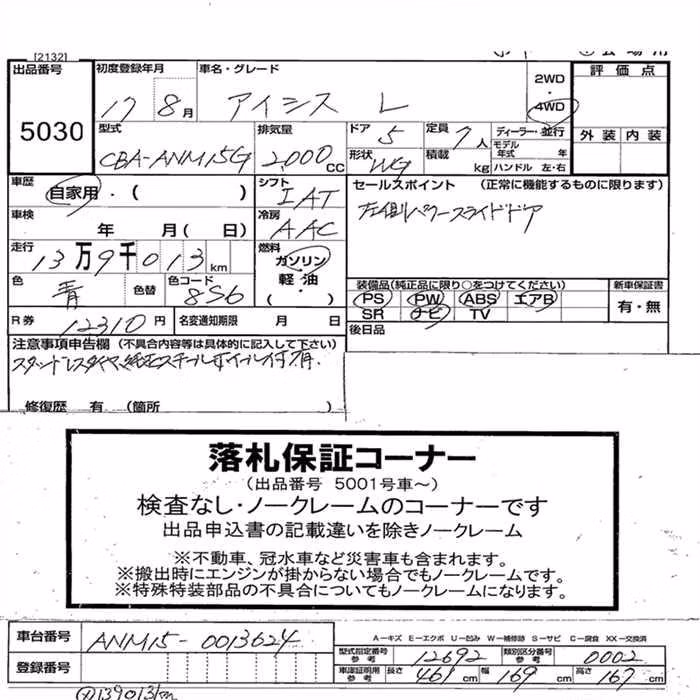 [2132]
出品番号 初度登録年月 車名・グレード 2WD・4WD 評価点
5030 17 8月 アイシス L
型式 排気量 ドア 5 定員 7人 ディーラー・並行 外装 内装
CBA-ANM15G 2,000CC 形状 WG 積載 kg モデル年式 年 ハンドル 左・右
車歴 自家用・( ) シフト IAT セールスポイント (正常に機能するものに限ります)
車検 年 月(日) 冷房 AAC 左側パワースライドドア
走行 13万9千013km 燃料 ガソリン 軽油・( )
色 青 色替 色コード 8S6 装備品(純正品に限り○をつけてください) 新車保証書
PS PW ABS エアB 有・無
SR ナビ TV
R券 12310円 名変通知期限 月 日 後日品
注意事項申告欄 (不具合内容等は具体的に記入して下さい)
スタッドレスタイヤ、純正スチールホイール付
修復歴 有 (箇所 )
落札保証コーナー
(出品番号 5001号車~)
検査なし・ノークレームのコーナーです
出品申込書の記載違いを除きノークレーム
※不動車、冠水車など災害車も含まれます。
※搬出時にエンジンが掛からない場合でもノークレームです。
※特殊特装部品の不具合についてもノークレームになります。
車台番号 ANM15-0013624 A-キズ E-エクボ U-凹み W-補修跡 S-サビ C-腐食 XX-交換済
型式指定番号 参考 12692 類別区分番号 参考 0002
登録番号 車庫証明用 参考 長さ 461cm 幅 169cm 高さ 167cm
139013km